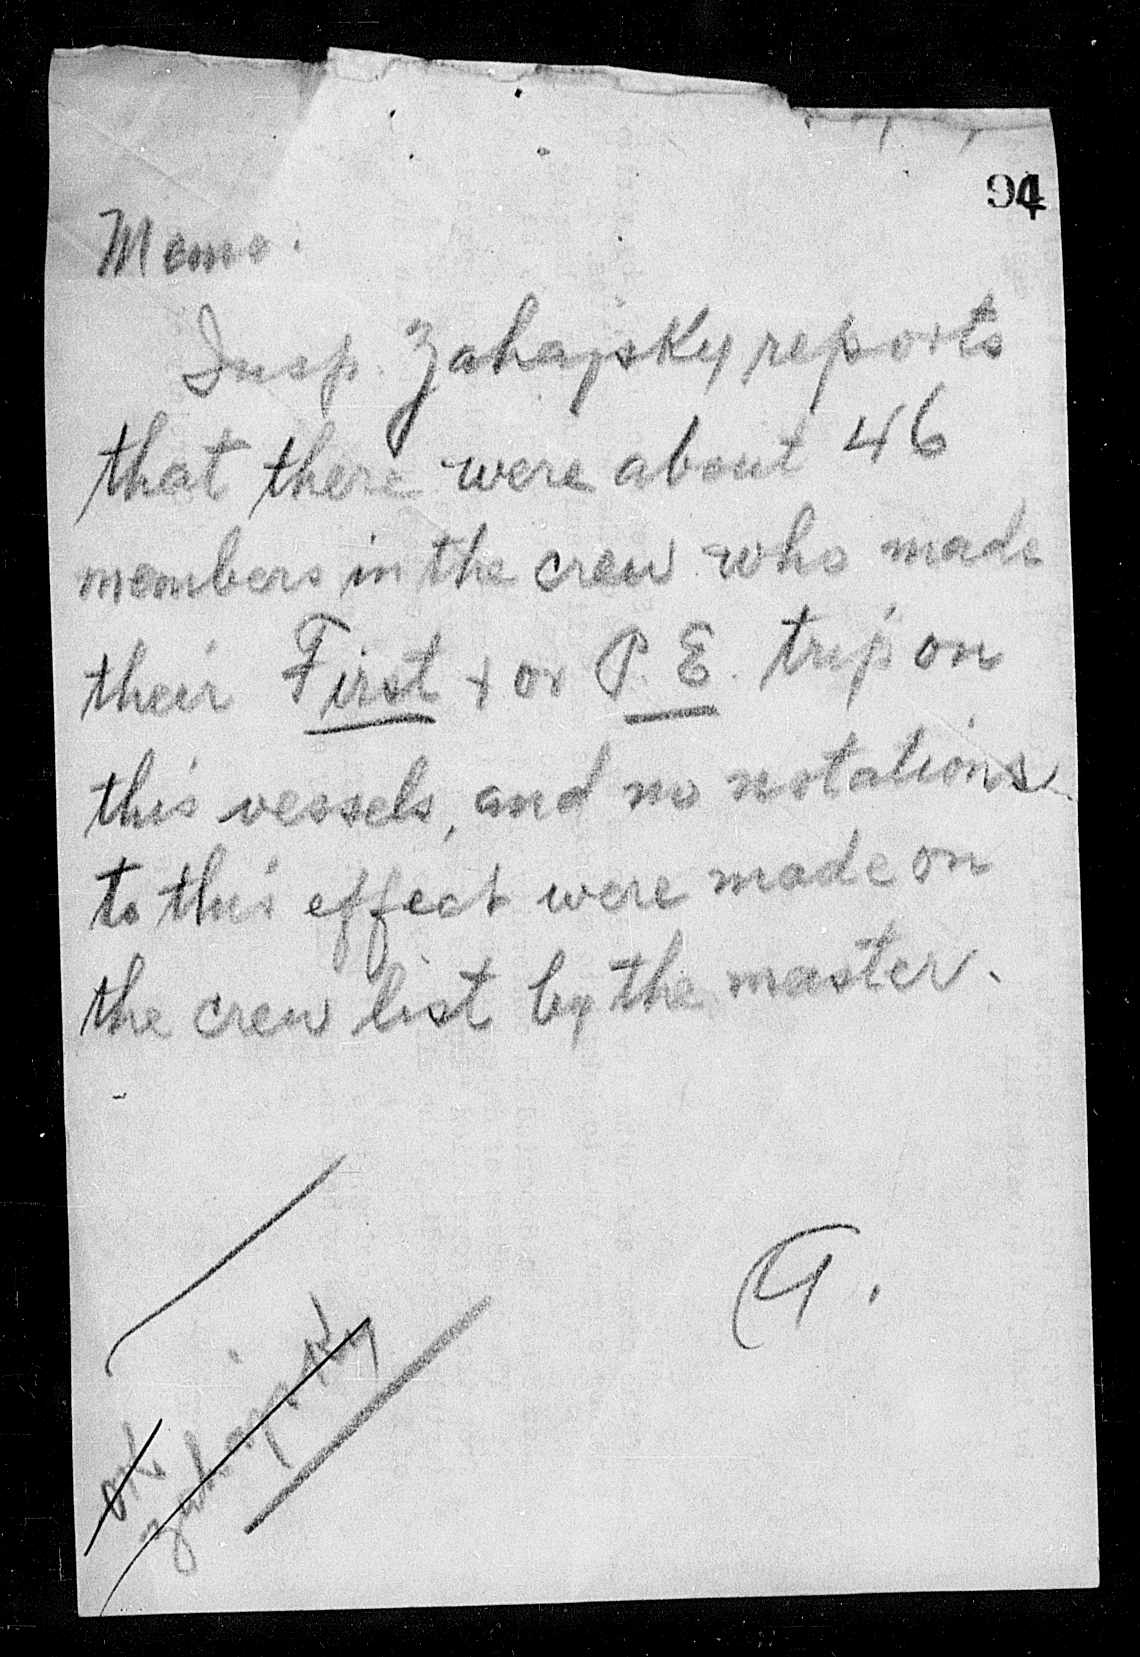 94
Memo.
Insp. Zahajsky reports
that there were about 46
members in the crew who made
their First & or P. E. trip on
this vessels, and no notations
to this effect were made on
the crew list by the master.
A.
OK
Zahajsky